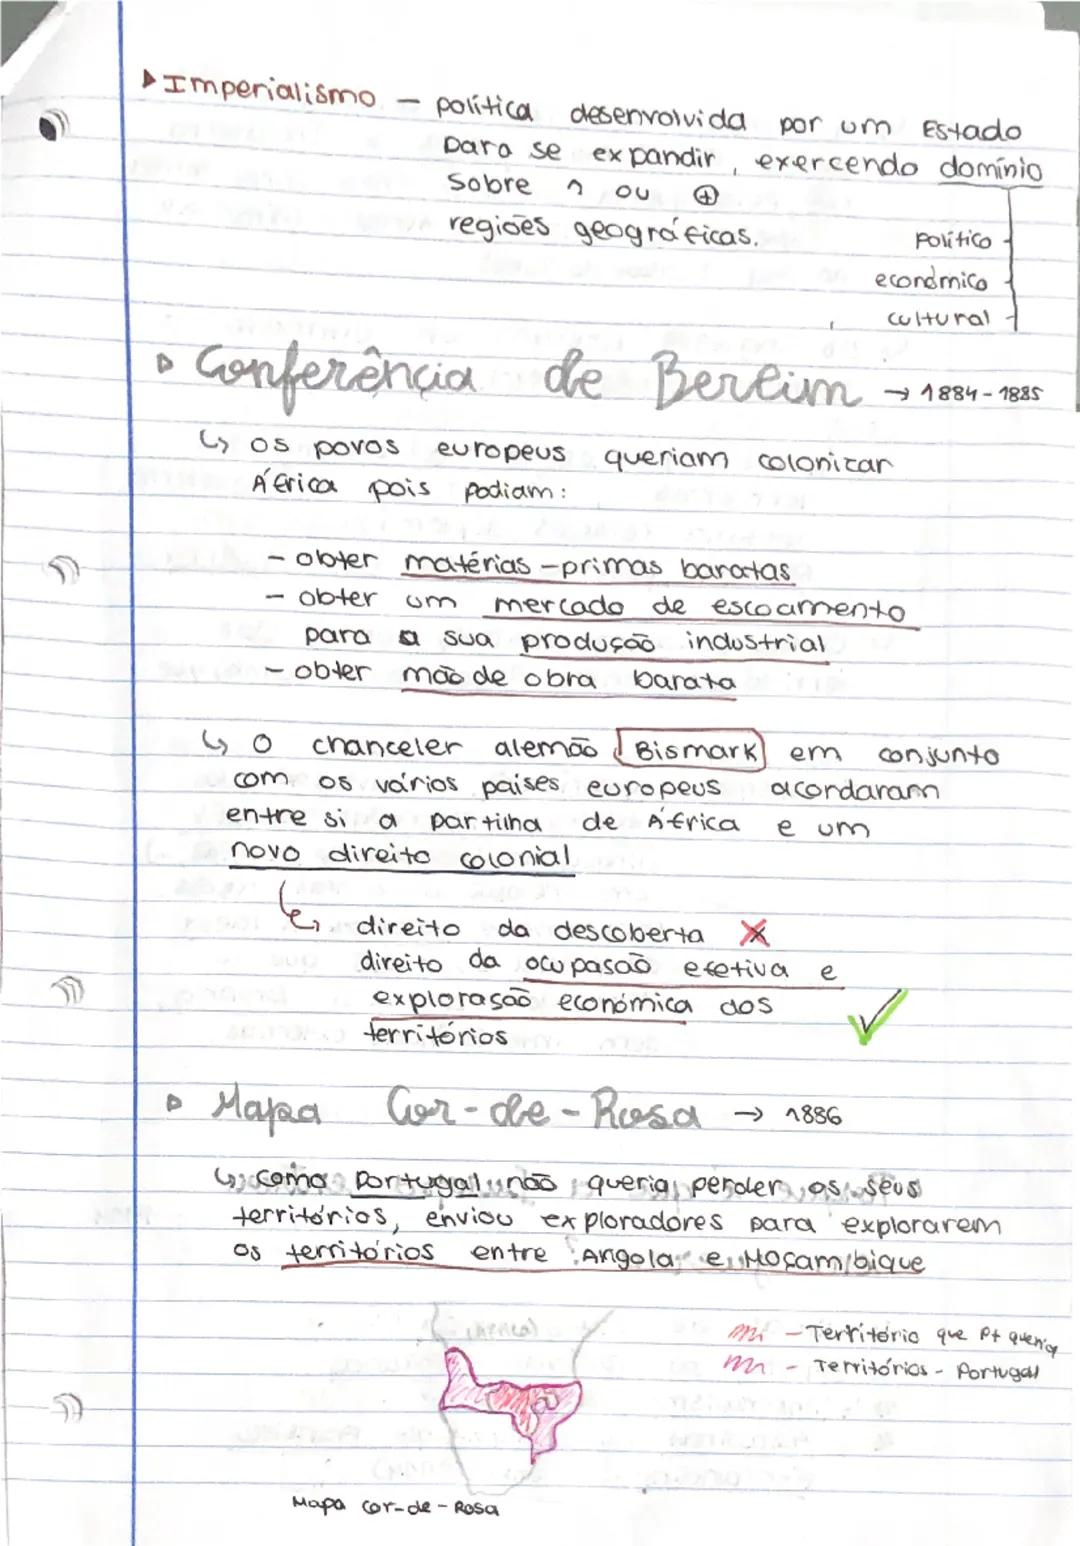 Imperialismo – política desenvolvida por um Estado
para se expandir, exercendo domínio
sobre 1 ou +
regiões geográficas.
político
económico
cultural
Conferência de Berlim → 1884-1885
↳ os povos europeus queriam colonizar
África pois podiam:
- obter matérias-primas baratas
- obter um mercado de escoamento
para a sua produção industrial
- obter mão de obra barata
↳ O chanceler alemão Bismark em conjunto
com os vários países europeus acordaram
entre si a partilha de África e um
novo direito colonial
↳ direito da descoberta X
direito da ocupasão efetiva e
explorasão económica dos
territórios ✓
Mapa Cor-de-Rosa → 1886
↳ como Portugal não queria perder os seus
territórios, enviou exploradores para explorarem
os territórios entre Angola e Moçambique
- Território que Pt queria
- Territórios - Portugal
Mapa cor-de-Rosa